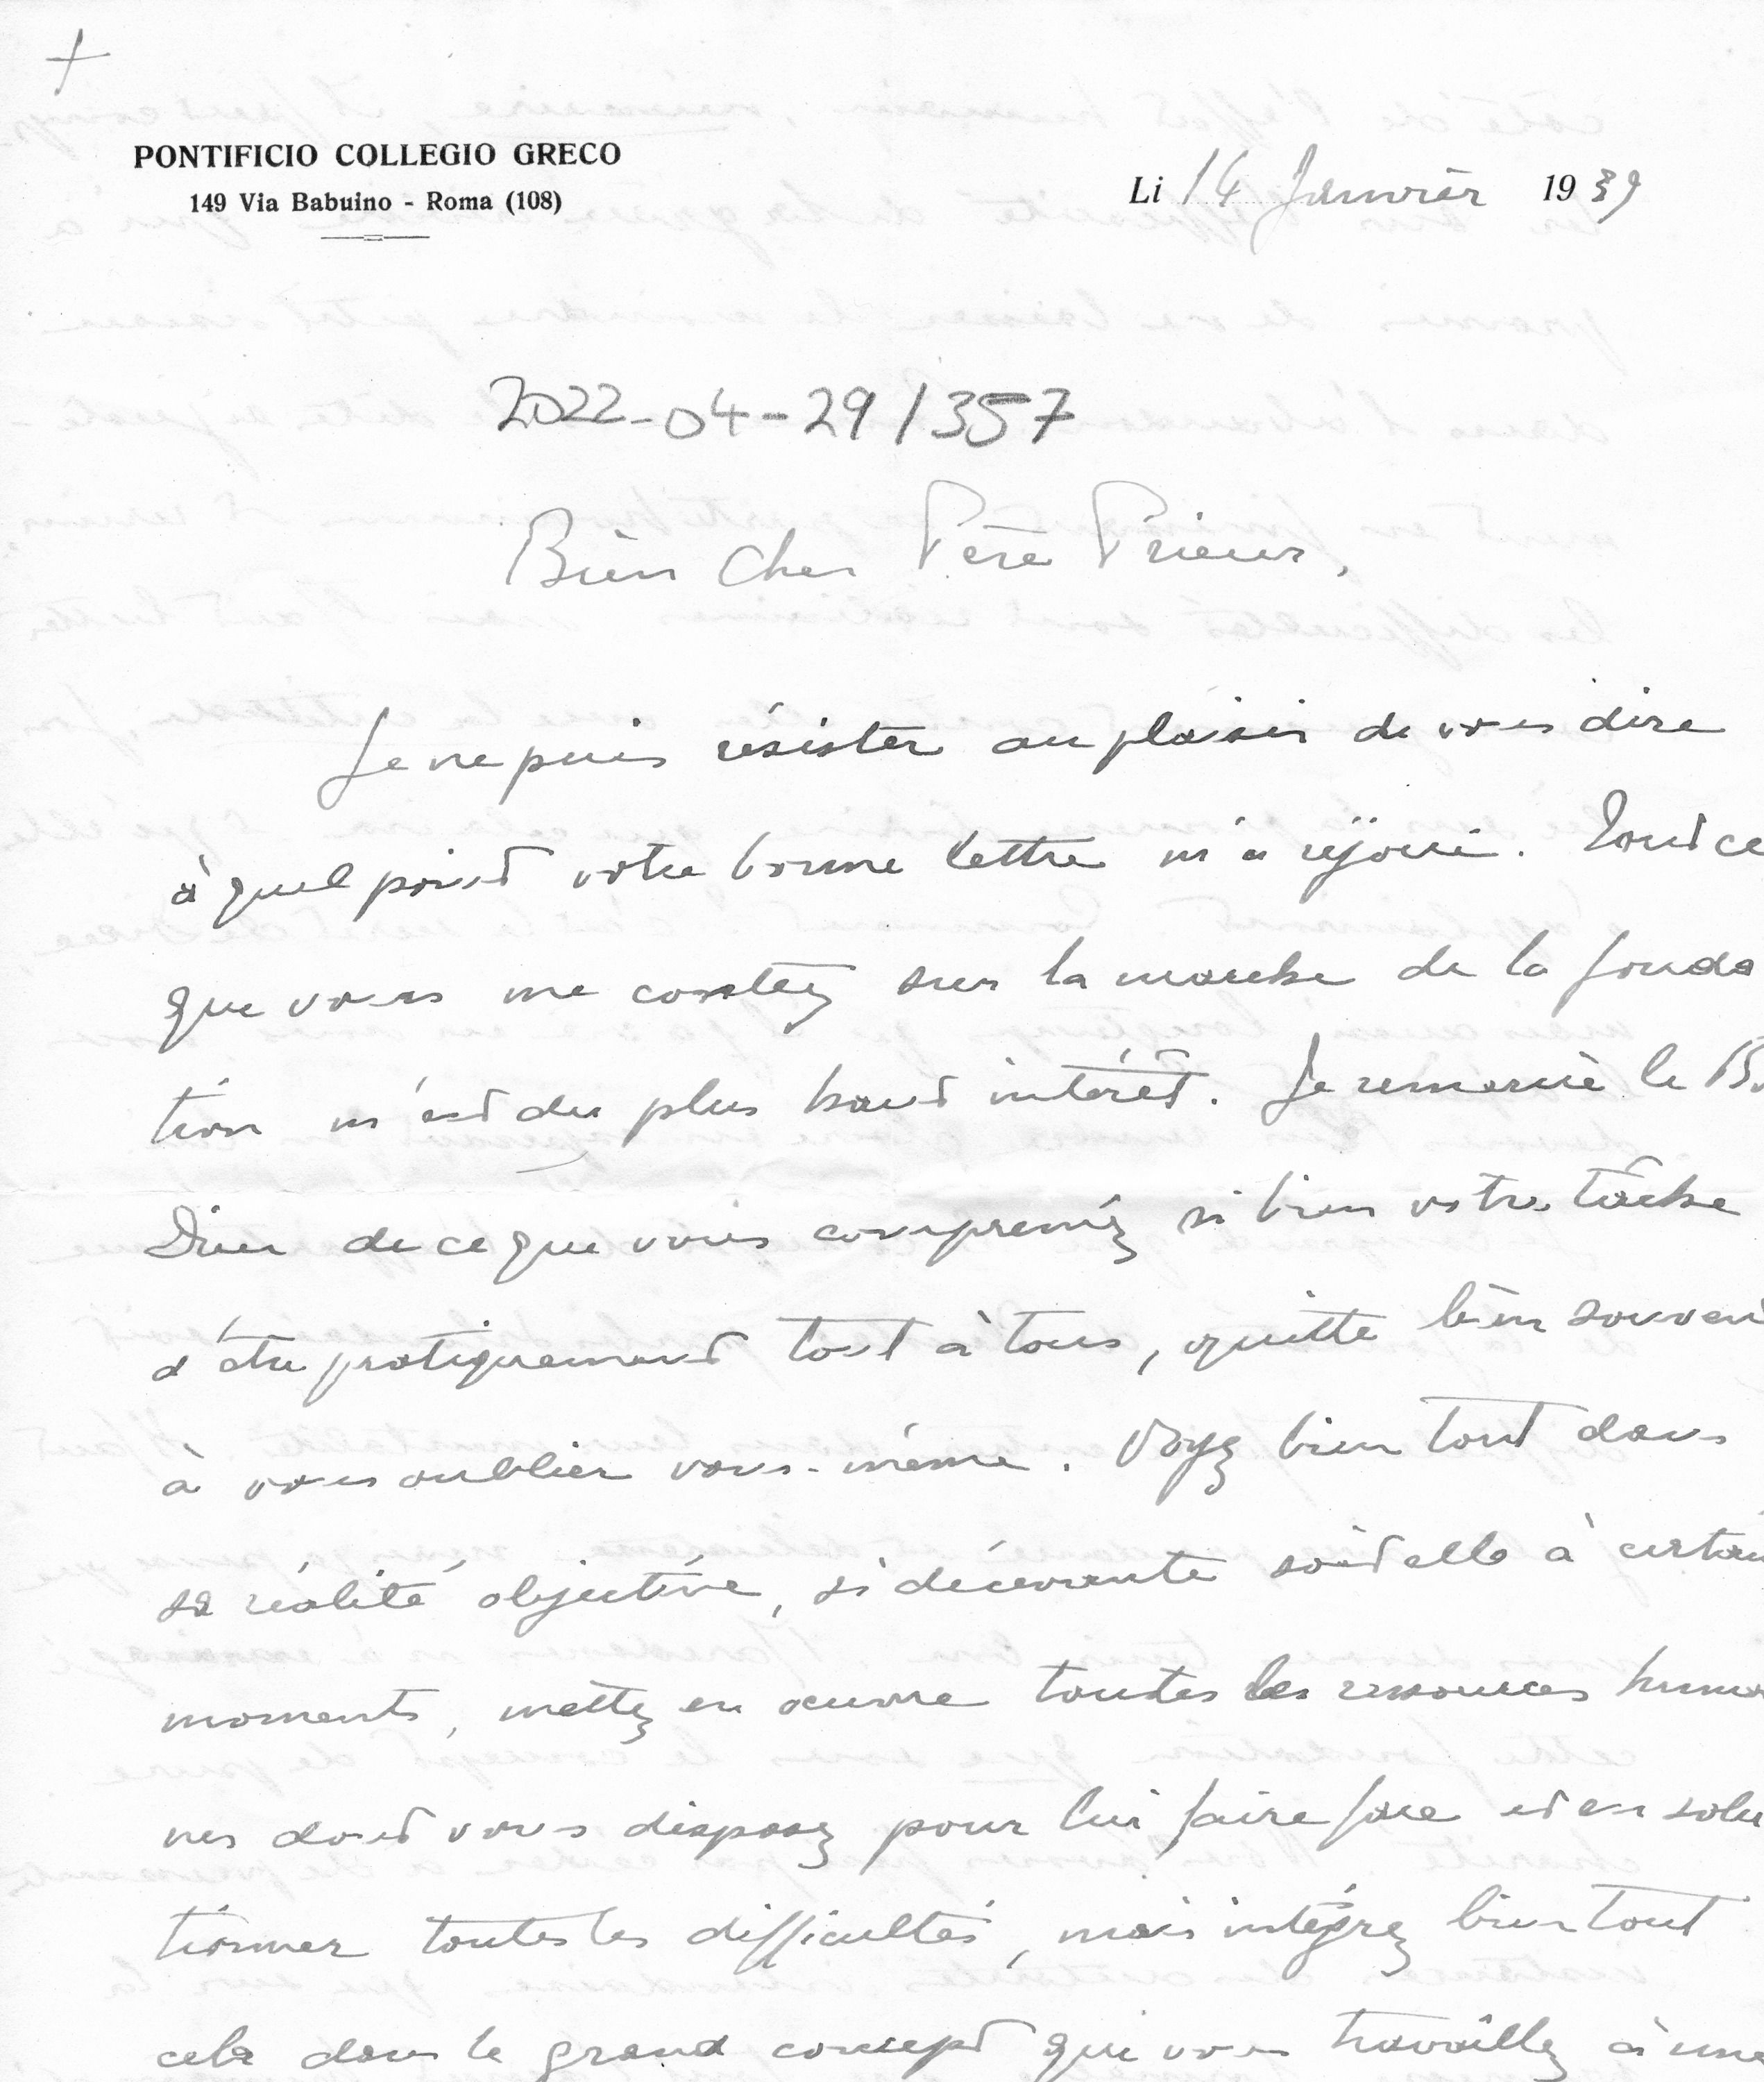 +
PONTIFICIO COLLEGIO GRECO
149 Via Babuino - Roma (108)
Li 14 Janvier 1939
2022-04-29/357
Bien cher Père Prieur,
Je ne puis résister au plaisir de vous dire
à quel point votre bonne lettre m'a réjoui. Tout ce
que vous me contez sur la marche de la fonda
tion m'est du plus haut intérêt. Je remercie le B.
Dieu de ce que vous comprenez si bien votre tâche
d'être pratiquement tout à tous, quitte bien souvent
à vous oublier vous-même. Voyez bien tout dans
sa réalité objective, si décevante soit elle à certains
moments, mettez en œuvre toutes les ressources humai
nes dont vous disposez pour lui faire face et en solu
tionner toutes les difficultés, mais intégrez bien tout
cela dans le grand concept que vous travaillez à une